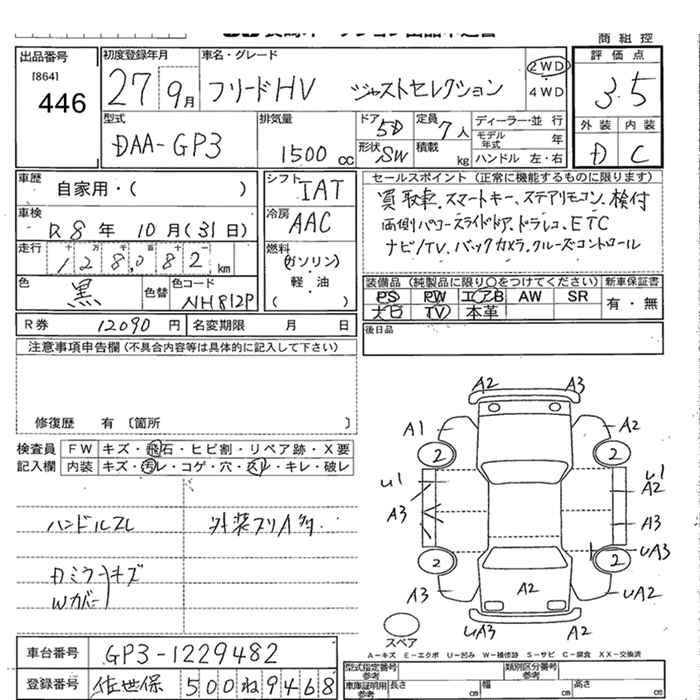 商 組 控
出品番号
[864]
446
初度登録年月
27 9月
車名・グレード
フリードHV ジャストセレクション
2WD
4WD
評価点
3.5
外装 内装
D C
型式
DAA-GP3
排気量
1500 cc
ドア 5D
形状 SW
定員 7人
積載 kg
ディーラー・並行
モデル年式 年
ハンドル 左・右
車歴
自家用・( )
車検
R8年 10月(31日)
走行
十万千百十一
128,082 km
色
黒
色替
色コード
NH812P
シフト
IAT
冷房
AAC
燃料
ガソリン
軽・油
( )
セールスポイント(正常に機能するものに限ります)
買取車、スマートキー、ステアリモコン、検付
両側パワースライドドア、ドラレコ、ETC
ナビ/TV、バックカメラ、クルーズコントロール
装備品(純製品に限り〇をつけてください)
PS PW エアB AW SR
ナビ TV 本革
新車保証書
有・無
R券 12090円
名変期限 月 日
後日品
注意事項申告欄(不具合内容等は具体的に記入して下さい)
修復歴 有〔箇所 〕
検査員
記入欄
FW キズ・飛石・ヒビ割・リペア跡・X要
内装 キズ・汚レ・コゲ・穴・スレ・キレ・破レ
ハンドルスレ
外装スリ
Dミラーキズ
Wカバー
A2 A3
A1 A2
2 2
U1 U1
A2
A3 A3
UA3
2 2
A3 A2 UA2
UA3 A2
スペア
A-キズ E-エクボ U-凹み W-補修跡 S-サビ C-腐食 XX-交換済
車台番号
GP3-1229482
登録番号
佐世保 500 ね 9468
型式指定番号
参考
類別区分番号
参考
車庫証明用
参考
長さ cm
幅 cm
高さ cm